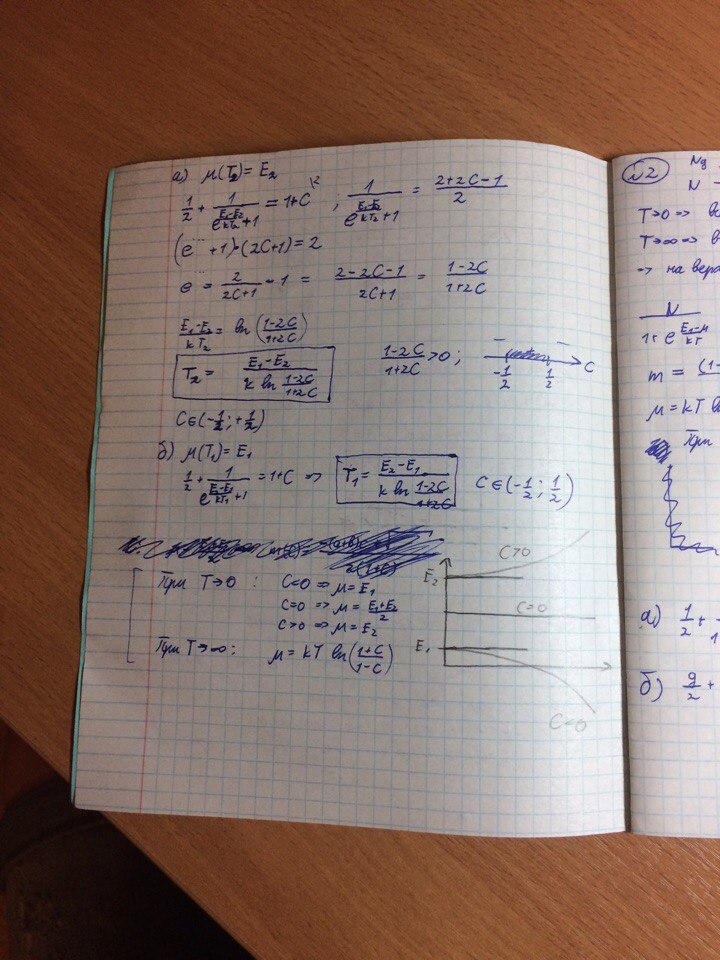 а) μ(T₂) = E₂
1/2 + 1/(e^((E₁-E₂)/kT₂) + 1) = 1+C ; 1/(e^((E₁-E₂)/kT₂) + 1) = (2+2C-1)/2
(e^… + 1)·(2C+1) = 2
e^… = 2/(2C+1) - 1 = (2-2C-1)/(2C+1) = (1-2C)/(1+2C)
(E₁-E₂)/(kT₂) = ln((1-2C)/(1+2C))
T₂ = (E₁-E₂)/(k ln((1-2C)/(1+2C))) (1-2C)/(1+2C) > 0 ; -1/2 1/2 C
C∈(-1/2; +1/2)
б) μ(T₁) = E₁
1/2 + 1/(e^((E₂-E₁)/kT₁) + 1) = 1+C => T₁ = (E₂-E₁)/(k ln((1-2C)/(1+2C))) C∈(-1/2; 1/2)
При T→0 : C<0 => μ = E₁
C=0 => μ = (E₁+E₂)/2
C>0 => μ = E₂
При T→∞ : μ = kT ln((1+C)/(1-C))
C>0
E₂
C=0
E₁
C<0
№2
N
T→0 =>
T→∞ =>
=> на
N
m = (1-
μ = kT
При
а) 1/2 +
б) g/2 +